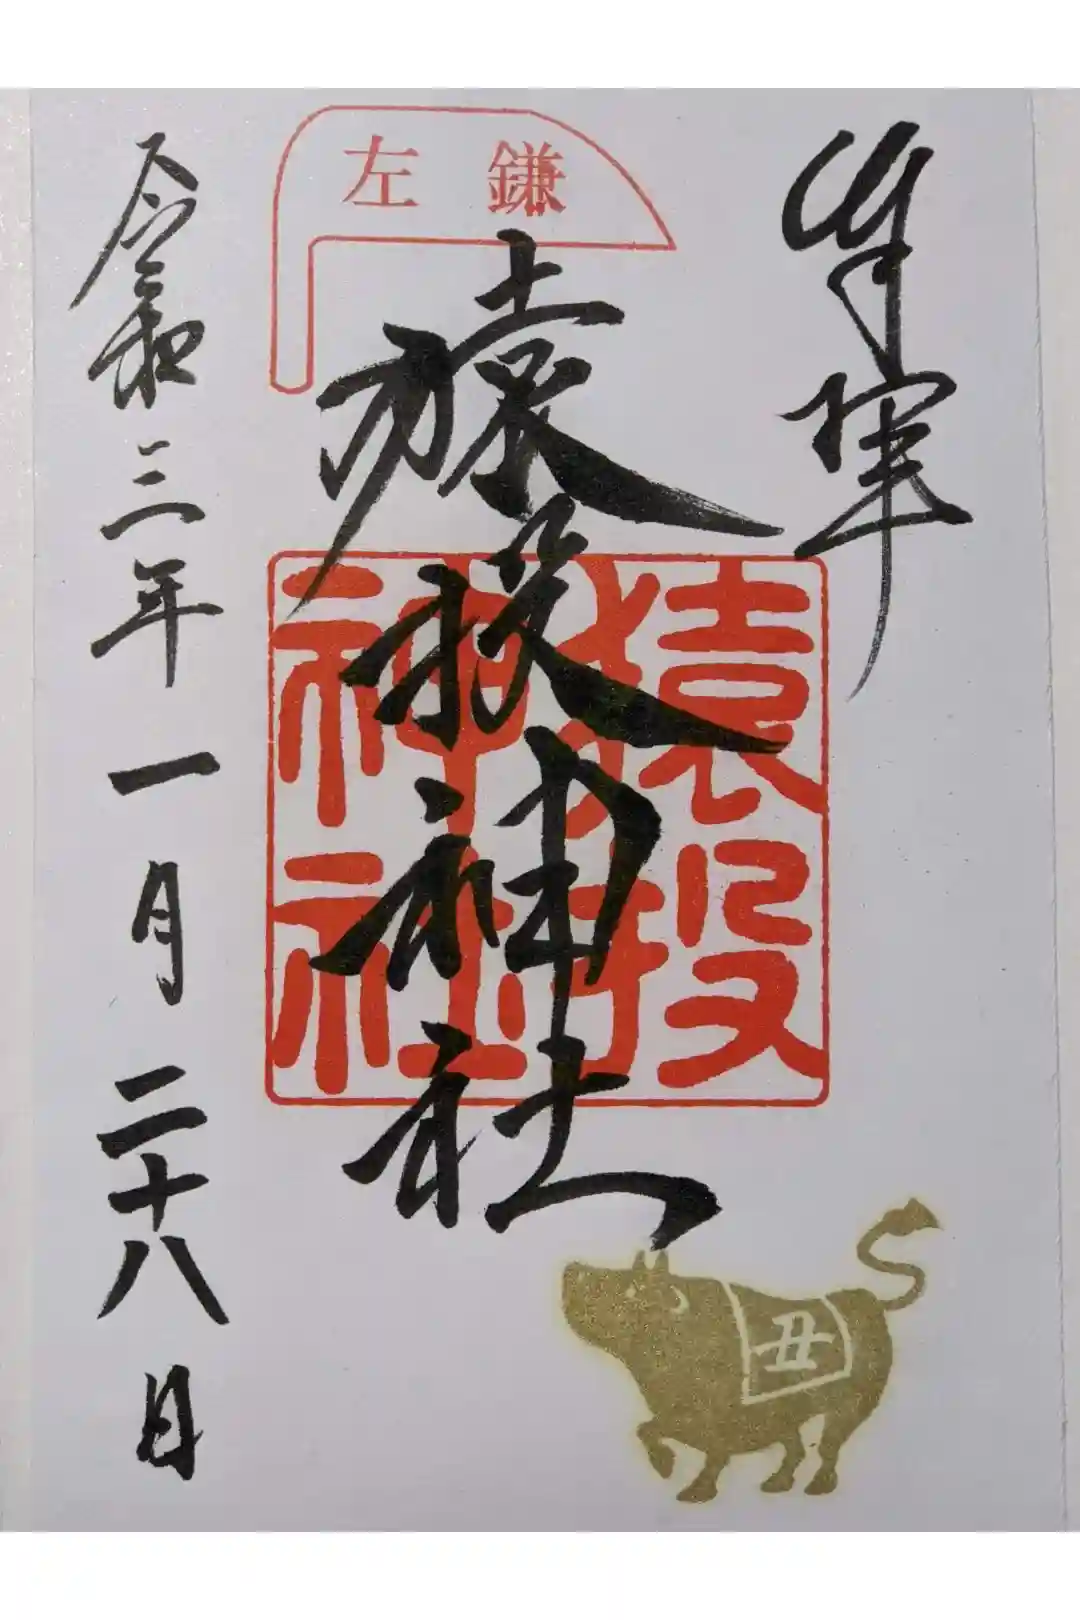 奉拝
左 鎌
猿投神社
猿投
神社
令和三年一月二十八日
丑